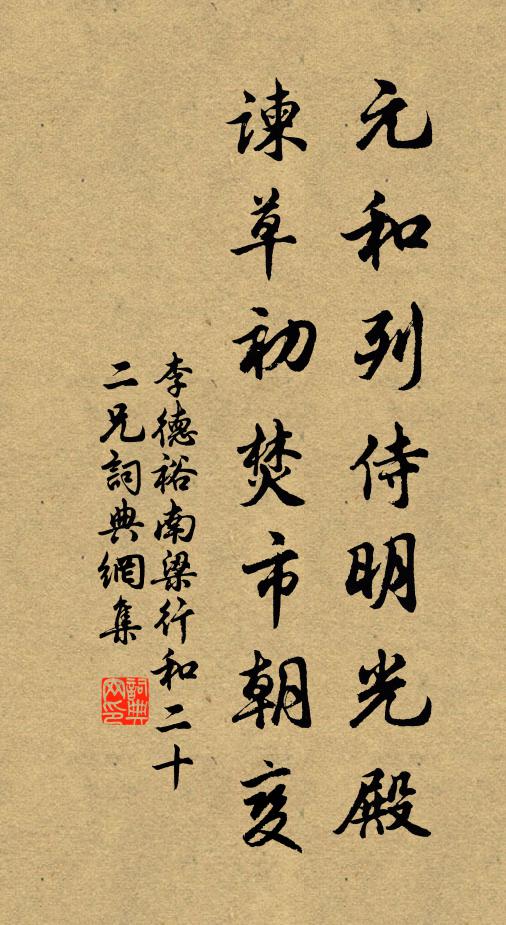 元和列侍明光殿
諫草初焚市朝变
李德裕南梁行和二十
二兄詞典網集
詞典
网印